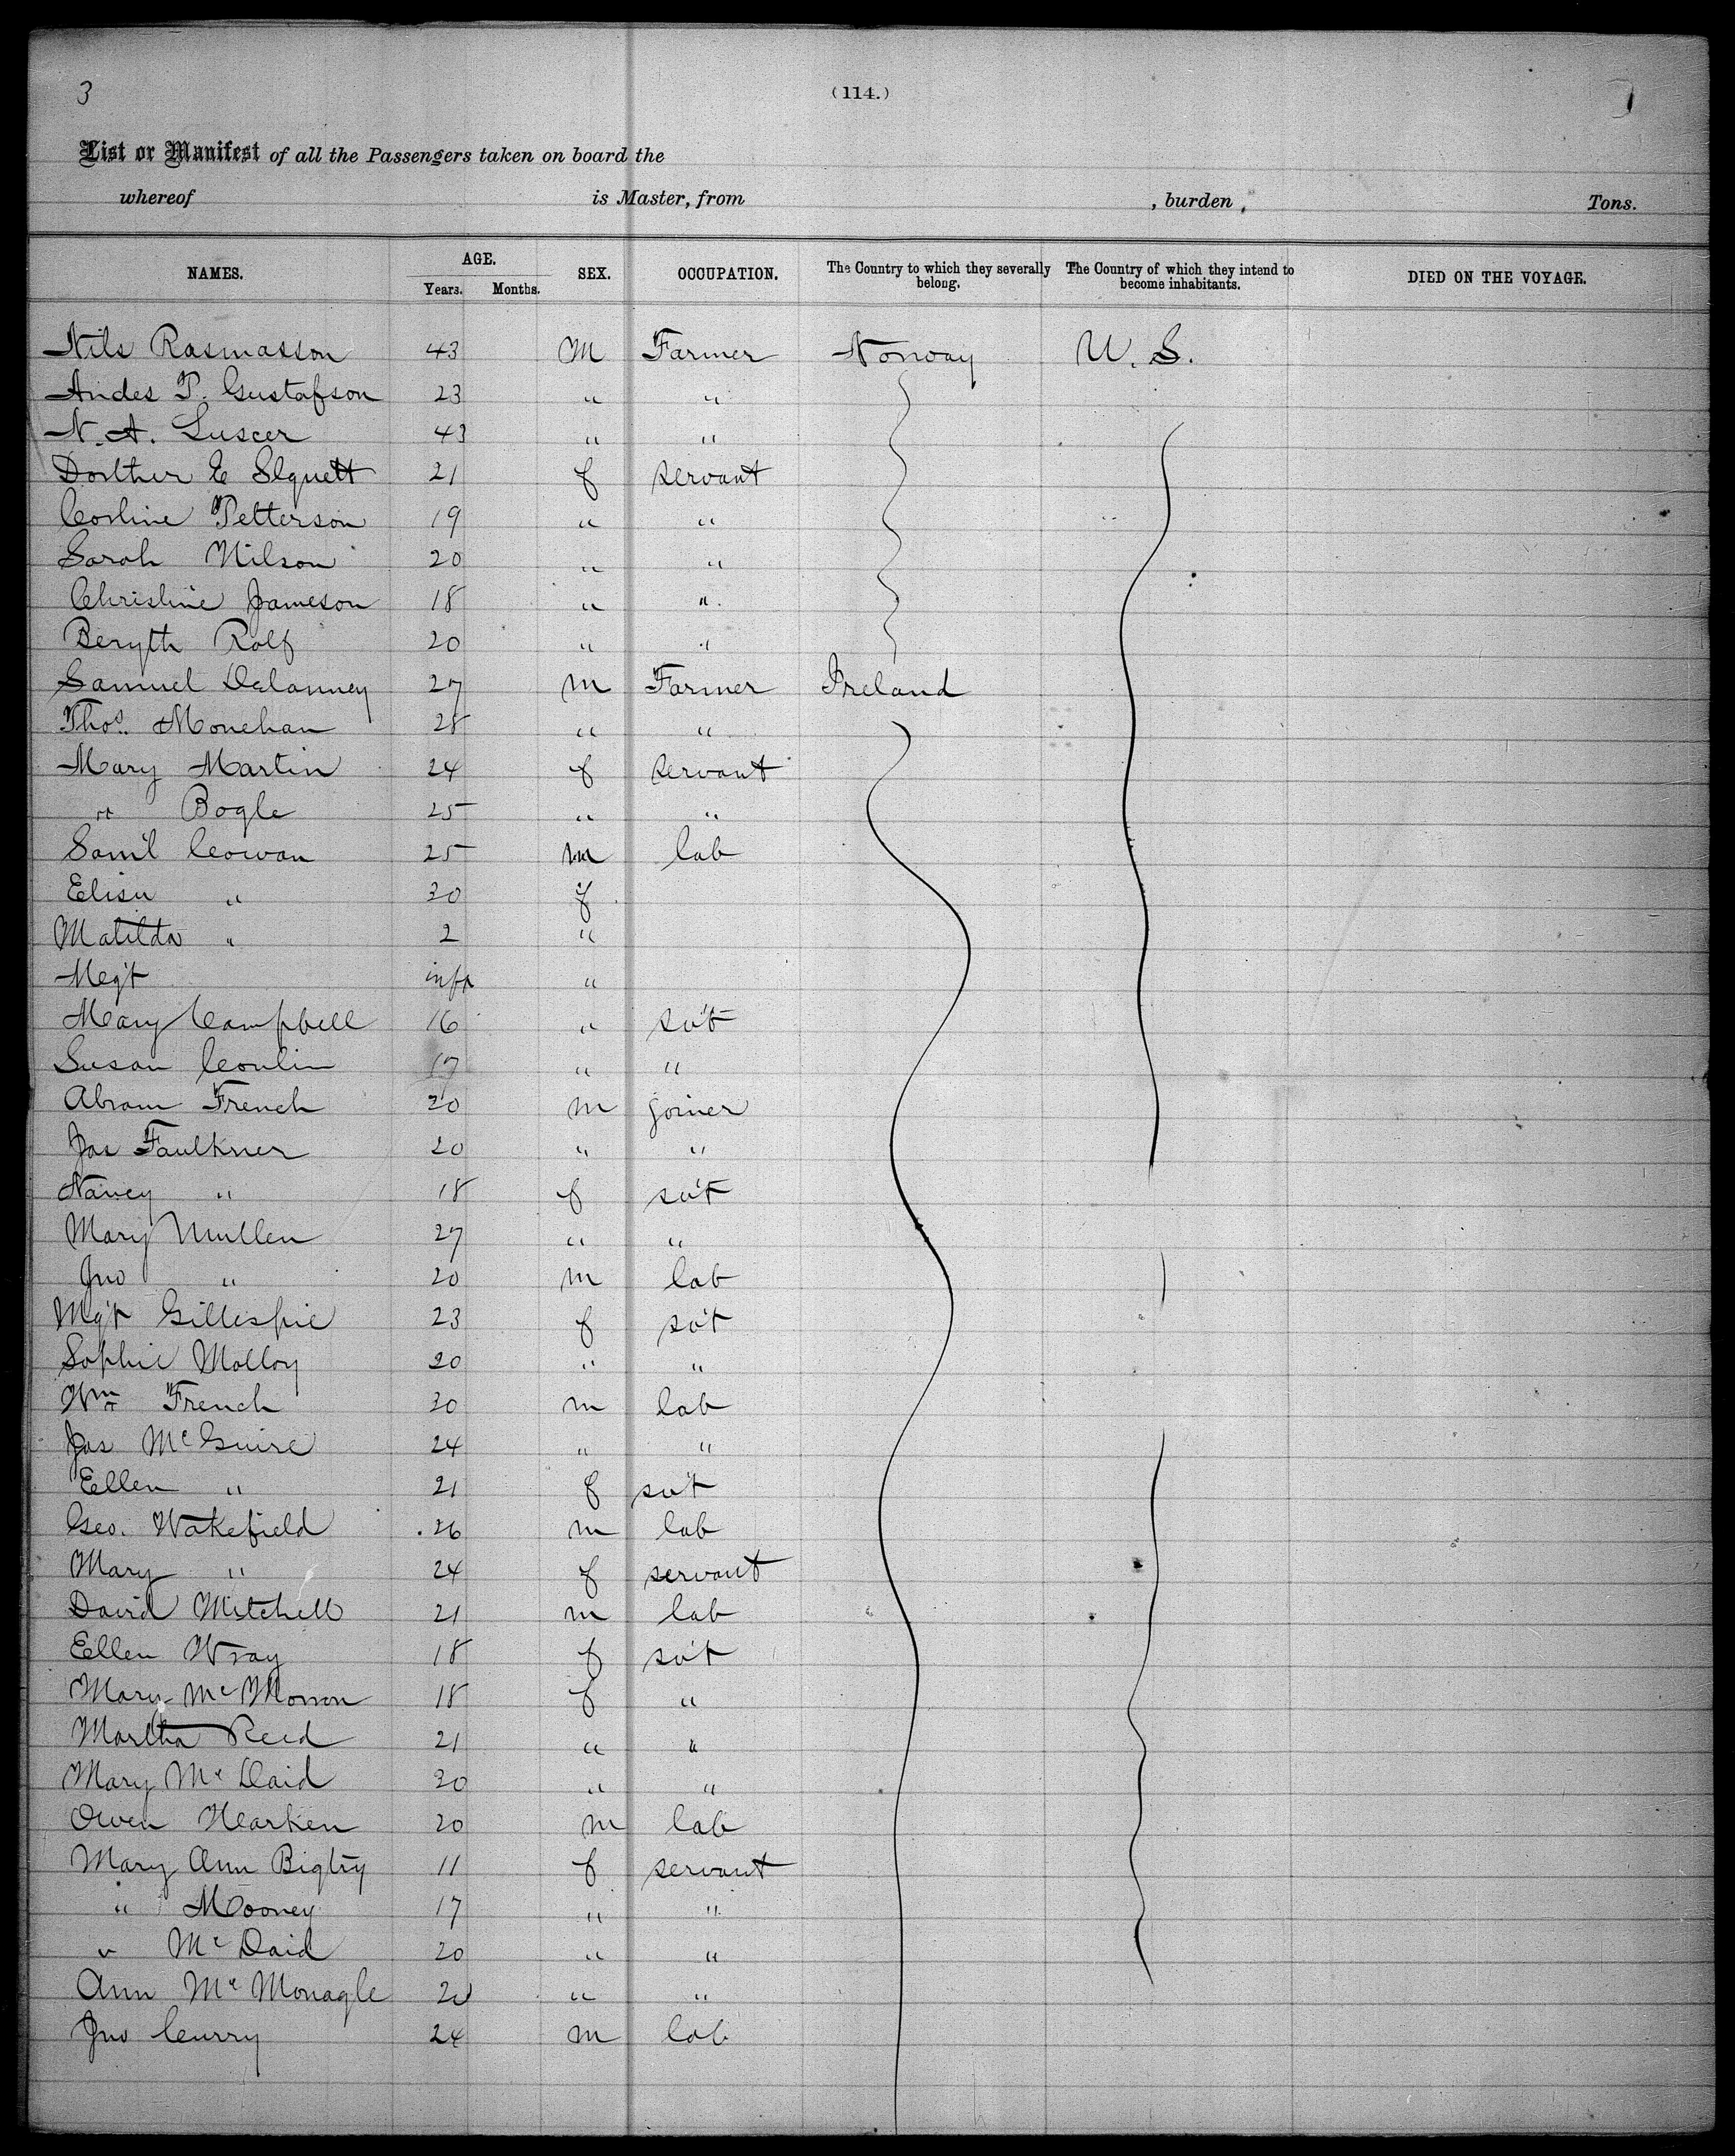 3 (114.) 1
List or Manifest of all the Passengers taken on board the
whereof is Master, from , burden , Tons.
NAMES. AGE. Years. Months. SEX. OCCUPATION. The Country to which they severally belong. The Country of which they intend to become inhabitants. DIED ON THE VOYAGE.
Nils Rasmasson 43 M Farmer Norway U. S.
Andes P. Gustafson 23 " "
N. A. Luscer 43 " "
Dorther E Slquett 21 f servant
Corline Petterson 19 " "
Sarah Nilson 20 " "
Christine Jameson 18 " "
Beryth Rolf 20 " "
Samuel Delanney 27 m Farmer Ireland
Thos. Monehan 28 " "
Mary Martin 24 f servant
" Bogle 25 " "
Saml Cowan 25 m lab
Elisu " 30 f
Matilda " 2 "
Megt inft "
Mary Campbell 16 " sv't
Susan Conlin 17 " "
Abram French 20 m joiner
Jas Faulkner 20 " "
Nancy " 18 f sv't
Mary Mullen 27 " "
Jno " 20 m lab
Mgt Gillespie 23 f sv't
Sophie Molloy 20 " "
Wm French 30 m lab
Jas McGuire 24 " "
Ellen " 21 f sv't
Geo. Wakefield 26 m lab
Mary " 24 f servant
David Mitchell 21 m lab
Ellen Wray 18 f sv't
Mary McMorron 18 f "
Martha Reed 21 " "
Mary McDaid 20 " "
Owen Hearken 20 m lab
Mary Ann Bigtry 11 f servant
" Mooney 17 " "
" McDaid 20 " "
Ann McMonagle 20 " "
Jno Curry 24 m lab